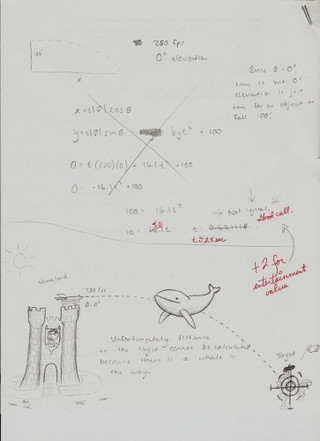 280 fps
0° elevation
100'
x
Since θ = 0°,
time to hit 0'
elevation is just
time for an object to
fall 100'.
x = t|v| cos θ
y = t|v| sin θ gt² + 100
0 = t(280)(0) - 16.1t² + 100
0 = -16.1t² + 100
100 = 16.1t²
Not
10 = t
t ≈ 2.5 sec
Good call.
+2 for
entertainment
value
Homeland
280 fps
θ = 0°
Target
Unfortunately, distance
to the target cannot be calculated
because there is a whale in
the way.